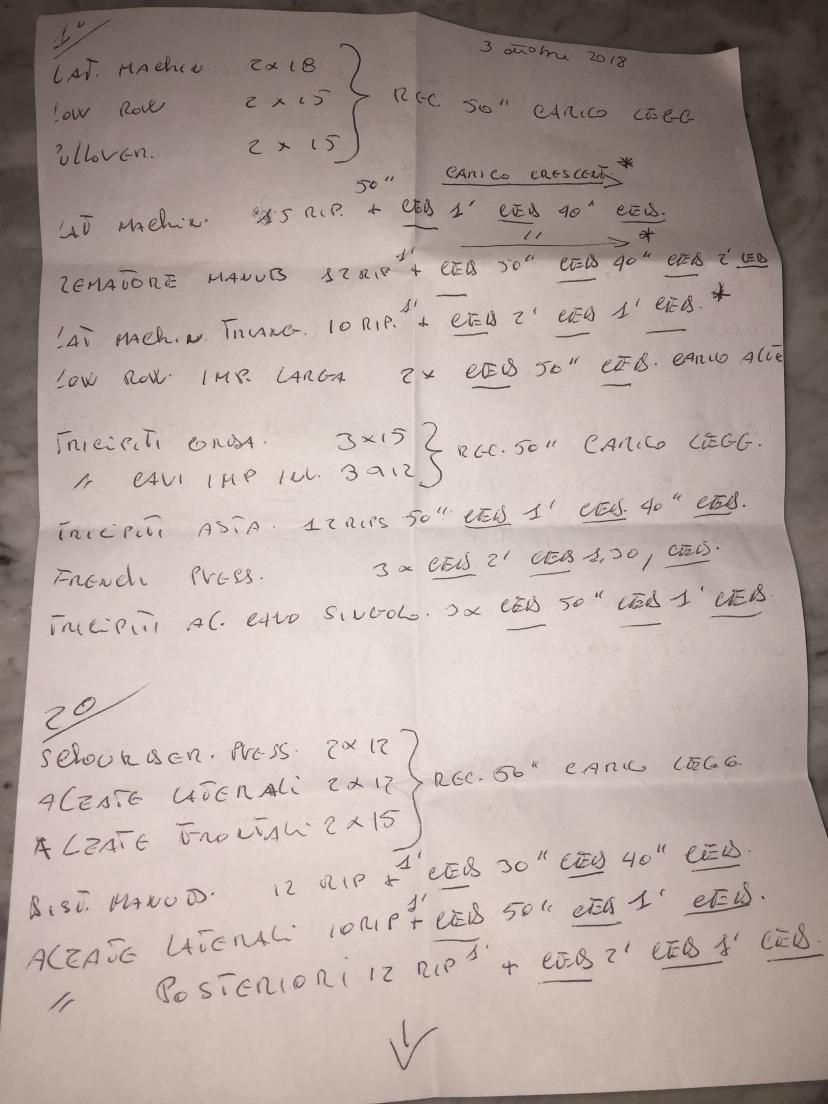 1°
3 ottobre 2018
LAT. MACHIN. 2x18
LOW ROW 2x15
PULLOVER. 2x15
REC. 50" CARICO LEGG.
50" CARICO CRESCENT. *
LAT MACHIN. 15 RIP. + CED 1' CED 40" CED.
" *
REMATORE MANUB 12 RIP 1' + CED 50" CED 40" CED 2' CED
LAT MACHIN. TRIANG. 10 RIP. 1' + CED 2' CED 1' CED. *
LOW ROW IMP. LARGA 2x CED 50" CED. CARICO
TRICIPITI CORDA. 3x15
" CAVI IMP 3x12
REC. 50" CARICO LEGG.
TRICIPITI ASTA. 12 RIPS 50" CED 1' CED. 40" CED.
FRENCH PRESS. 3x CED 2' CED 1,30, CED.
TRICIPITI AL CAVO SINGOLO. 3x CED 50" CED 1' CED
2°
SCHOULDER. PRESS. 2x12
ALZATE LATERALI 2x12
ALZATE FRONTALI 2x15
REC. 50" CARICO LEGG.
DIST. MANUB. 12 RIP + 1' CED 30" CED 40" CED.
ALZATE LATERALI 10 RIP 1' + CED 50" CED 1' CED.
" POSTERIORI 12 RIP 1' + CED 2' CED 1' CED.